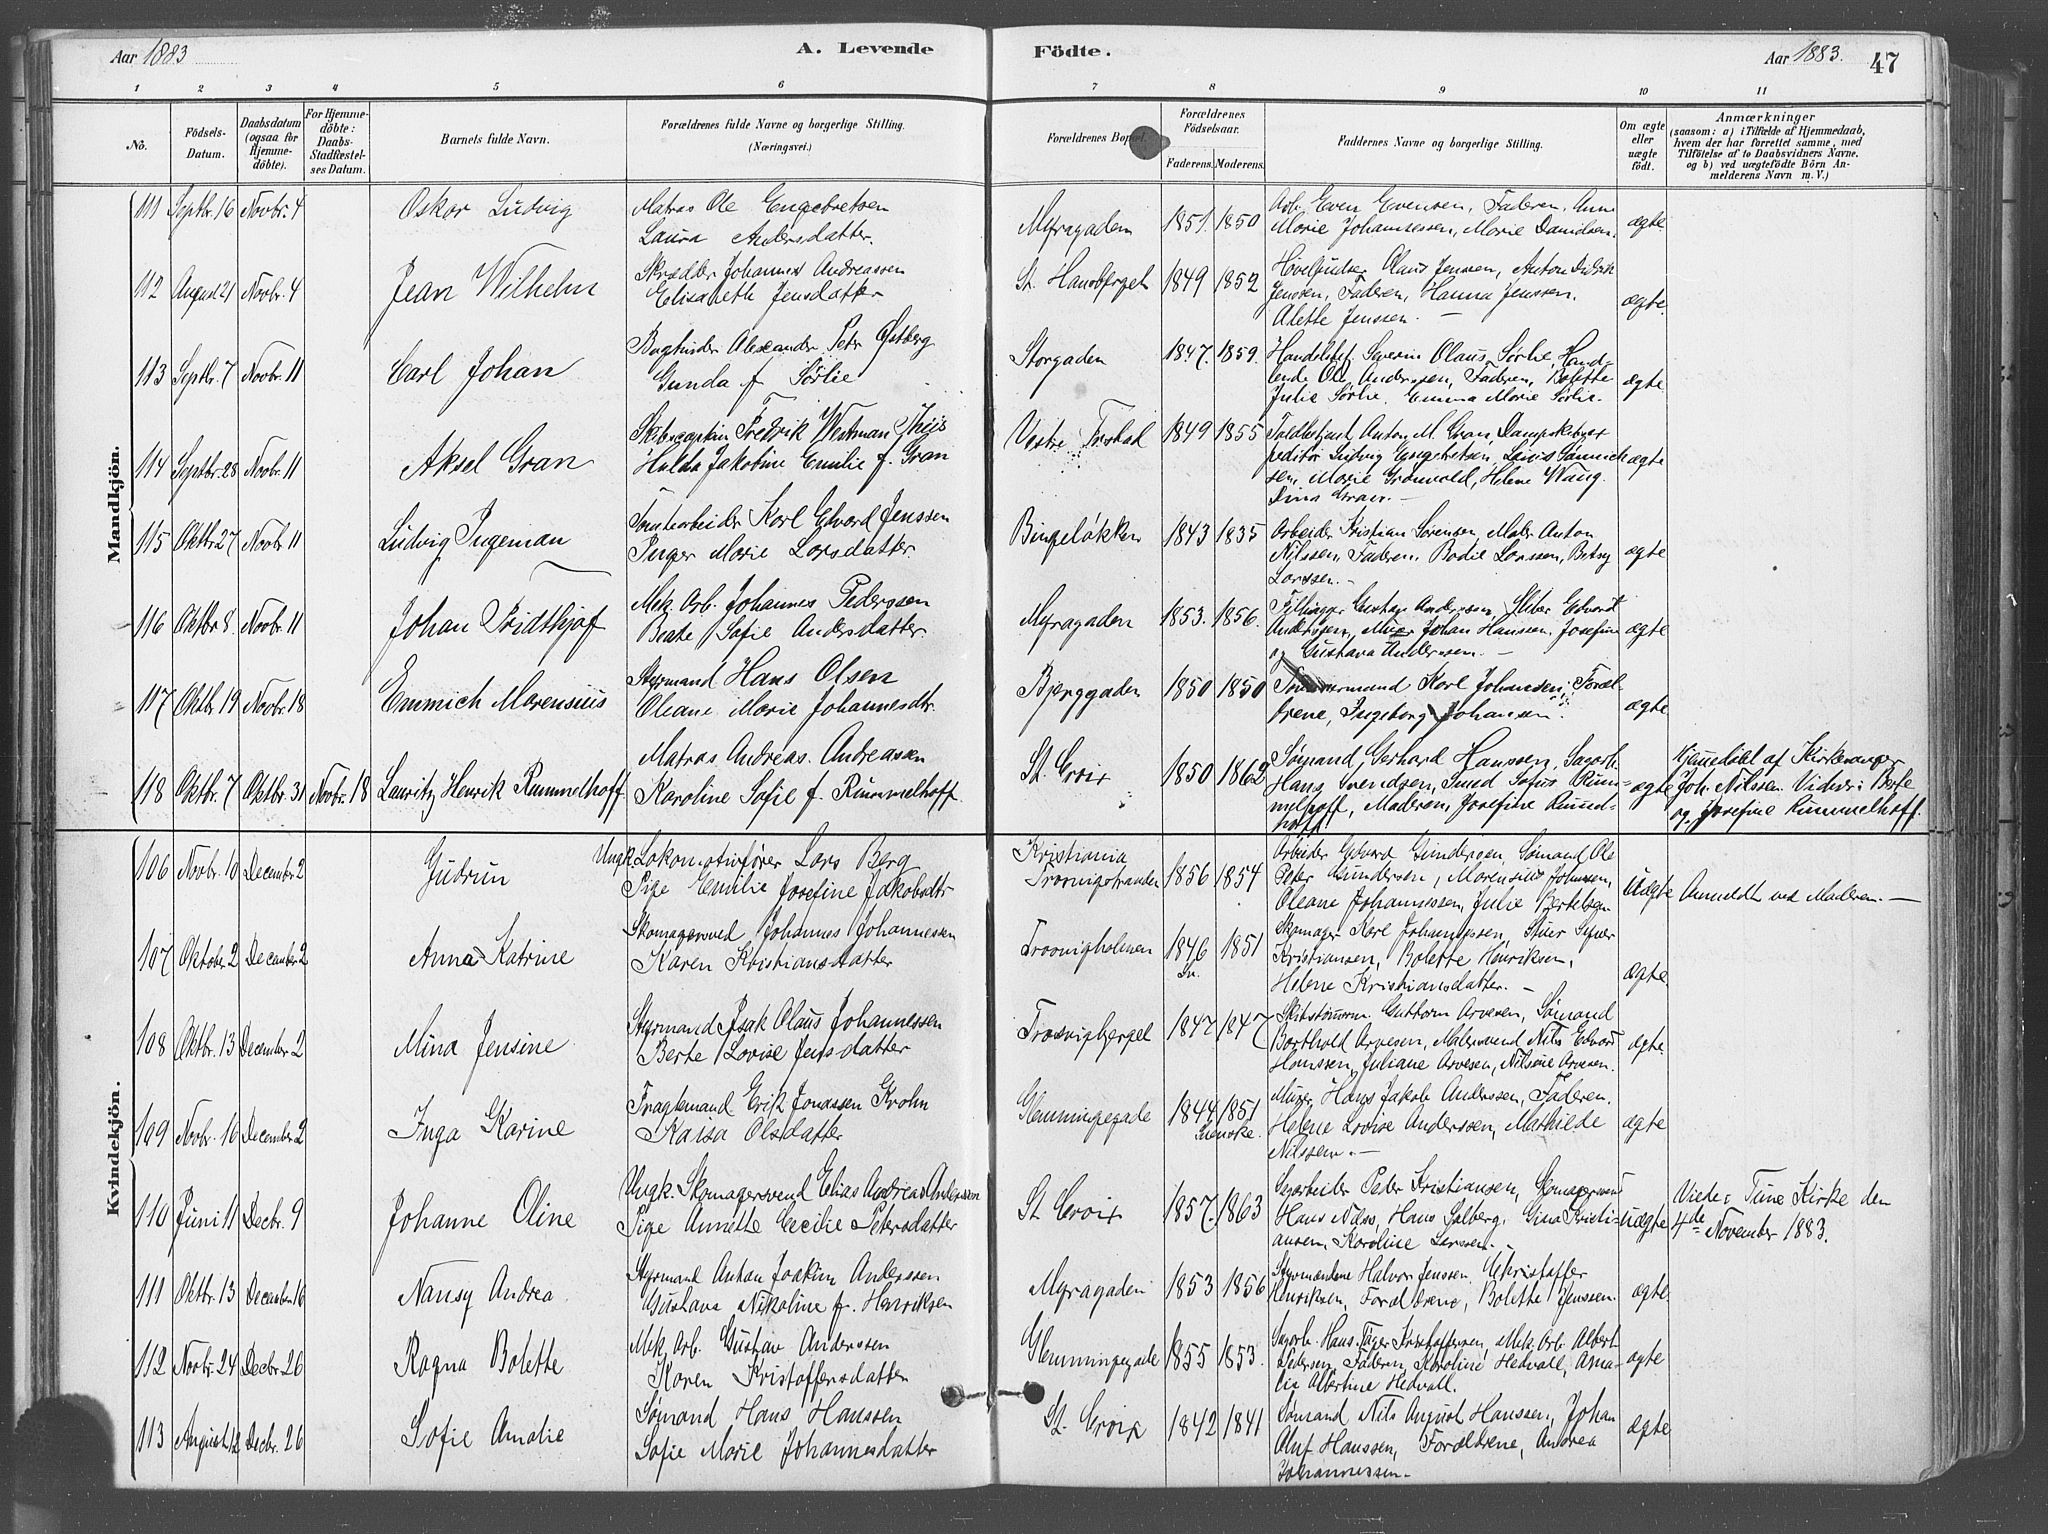 Aar 1883
A. Levende
Födte.
Aar 1883.
47
1 2 3 4 5 6 7 8 9 10 11
No.
Födsels-
Datum.
Daabsdatum
(ogsaa for
Hjemme-
döbte).
For Hjemme-
döbte:
Daabs-
Stadfæstel-
ses Datum.
Barnets fulde Navn.
Forældrenes fulde Navne og borgerlige Stilling.
(Næringsvei.)
Forældrenes
Forældrenes
Födselsaar.
Faderens. Moderens.
Faddernes Navne og borgerlige Stilling.
Om ægte
eller
uægte
födt.
Anmærkninger
(saasom: a) i Tilfælde af Hjemmedaab,
hvem der har forrettet samme, med
Tilföielse af to Daabsvidners Navne,
og b) ved uægtefödte Börn An-
melderens Navn m. V.)
Mandkjön.
111 Septbr. 16 Novbr. 4 Oskar Ludvig
Matros Ole Engebretsen
Laura Andersdatter.
Myragaden 1851. 1850
Arb. Even Evensen, Faderen, Anne
Marie Johannessen, Marie Davidsen.
ægte.
112 August 21 Novbr. 4 Jean Wilhelm
Skrædder Johannes Andreassen
Elisabeth Jensdatter
St. Hansberget 1849 1852
Olaus Jenssen, Anton Didrik
Jenssen, Faderen, Hanna Jenssen.
Alette Jenssen.
ægte.
113 Septbr. 7 Novbr. 11 Carl Johan
Bogbinder Alexander Petr Østberg
Gunda f. Sørlie
Storgaden 1847. 1859.
Handelsbet. Severin Olaus Sørlie, Hand-
lende Ole Anderssen, Faderen, Bolette
Julie Sørlie, Emma Marie Sørlie.
ægte
114 Septbr. 28 Novbr. 11 Aksel Gran
Skibscaptein Fredrik Westman Thiis
Hulda Jakobine Emilie f. Gran
Vestre Frstad 1849 1855
Toldbetjent Anton M. Gran, Dampskibsex-
peditør Ludvig Engebretsen,
sen, Marie Grønvold, Helene Wang.
Dina Gran.
ægte
115 Oktbr. 27 Novbr. 11 Ludvig Ingeman
Tomtearbeider Karl Edvard Jenssen
Inger Marie Larsdatter
Bingeløkken 1843 1835
Arbeider Kristian Sørensen, Maler Anton
Nilssen, Faderen, Bodil Larssen, Betsy
Larssen.
ægte
116 Oktbr. 8. Novbr. 11 Johan Fridthjof
Mek. Arb. Johannes Pederssen
Beate Sofie Andersdatter
Myragaden 1853. 1856.
Gustav Anderssen, Edvard
Anderssen, Murer Johan Hanssen, Josefine
og Gustava Anderssen.
ægte
117 Oktbr. 19 Novbr. 18 Emmich Marensius
Styrmand Hans Olsen
Oleane Marie Johannesdtr.
Bjerggaden 1850 1850
Tømmermand Karl Johansen, Foræl-
drene, Ingeborg Johansen.
ægte
118 Oktbr. 7 Oktbr. 31 Novbr. 18 Lauritz Henrik Rummelhoff.
Matros Andreas Andreasen
Karoline Sofie f. Rummelhoff
St. Croix 1850 1862
Sømand Gerhard Hanssen, Sagarb.
Hans Svendsen, Smed Sofus Rum-
melhoff, Moderen, Josefine Rummel-
hoff
ægte
Hjemmedøbt af Kirkesanger
Joh. Nilssen. Vidner: Berte
og Josefine Rummelhoff.
Kvindekjön.
106 Novbr. 10 December 2 Gudrun
Ungk. Lokomotivfører Lars Berg
Pige Emilie Josefine Jakobsdtr
Kristiania
Trosvigstranden 1856 1854
Arbeider Edvard Gundersen, Sømand Ole
Peter Gundersen, Marensius Johansen,
Oleane Johannessen, Julie Bertelsen
Uægte Anmeldt ved Moderen.
107 Oktober 2 December 2 Anna Katrine
Skomagersvend Johannes Johannessen
Karen Kristiansdatter
Trosvigholmen 1846 1851
Sv.
Skomager Karl Johannessen, Syver
Kristiansen, Bolette Henriksen,
Helene Kristiansdatter.
ægte.
108 Oktbr. 13 December 2 Mina Jensine
Styrmand Isak Olaus Johannessen
Berte Lovise Jensdatter
Trosvigberget 1847 1847
Skibstømm. Guttorm Arvesen, Sømand
Barthold Arvesen, Malersvend Nils Edvard
Hanssen, Juliane Arvesen, Nilsine Arvesen.
ægte.
109 Novbr. 10 December 2 Inga Karine
Fragtemand Erik Jonassen Krohn
Kaisa Olsdatter
Glemmingegade 1844. 1851
Svenske.
Murer Hans Jakob Anderssen, Faderen.
Helene Lovise Anderssen, Mathilde
Nilssen.
ægte
110 Juni 11 Decbr. 9 Johanne Oline
Ungk. Skomagersvend Elias Andreas Anderssen
Pige Annette Cecilie Petersdatter
St Croix 1857. 1863
Sagarbeider Peder Kristiansen, Skomagersvend
Hans Næss, Hans Solberg, Gina Kristi-
ansen, Karoline Larssen.
uægte
Viede i Tune Kirke den
4de November 1883.
111 Oktbr. 13 December 16 Nansy Andrea
Styrmand Anton Joakim Anderssen
Gustava Nikoline f. Henriksen
Myragaden 1853 1856
Styrmændene Halvor Jenssen, Christoffer
Henriksen, Forældrene, Bolette Jenssen.
ægte.
112 Novbr. 24 Decbr. 26 Ragna Bolette
Mek. Arb. Gustav Anderssen
Karen Kristoffersdatter
Glemmingegade 1855 1853.
Sagarb. Hans Kristoffersen, Mek. Arb. Albert
Pedersen, Faderen, Karoline Hedvall, Ama-
lia Albertine Hedvall.
ægte
113 August 12 Decbr. 26 Sofie Amalie
Sømand Hans Hanssen
Sofie Marie Johannesdatter
St. Croix 1842 1841
Sømand Nils August Hanssen, Johan
Oluf Hanssen, Forældrene, Andrea
Johannessen.
ægte